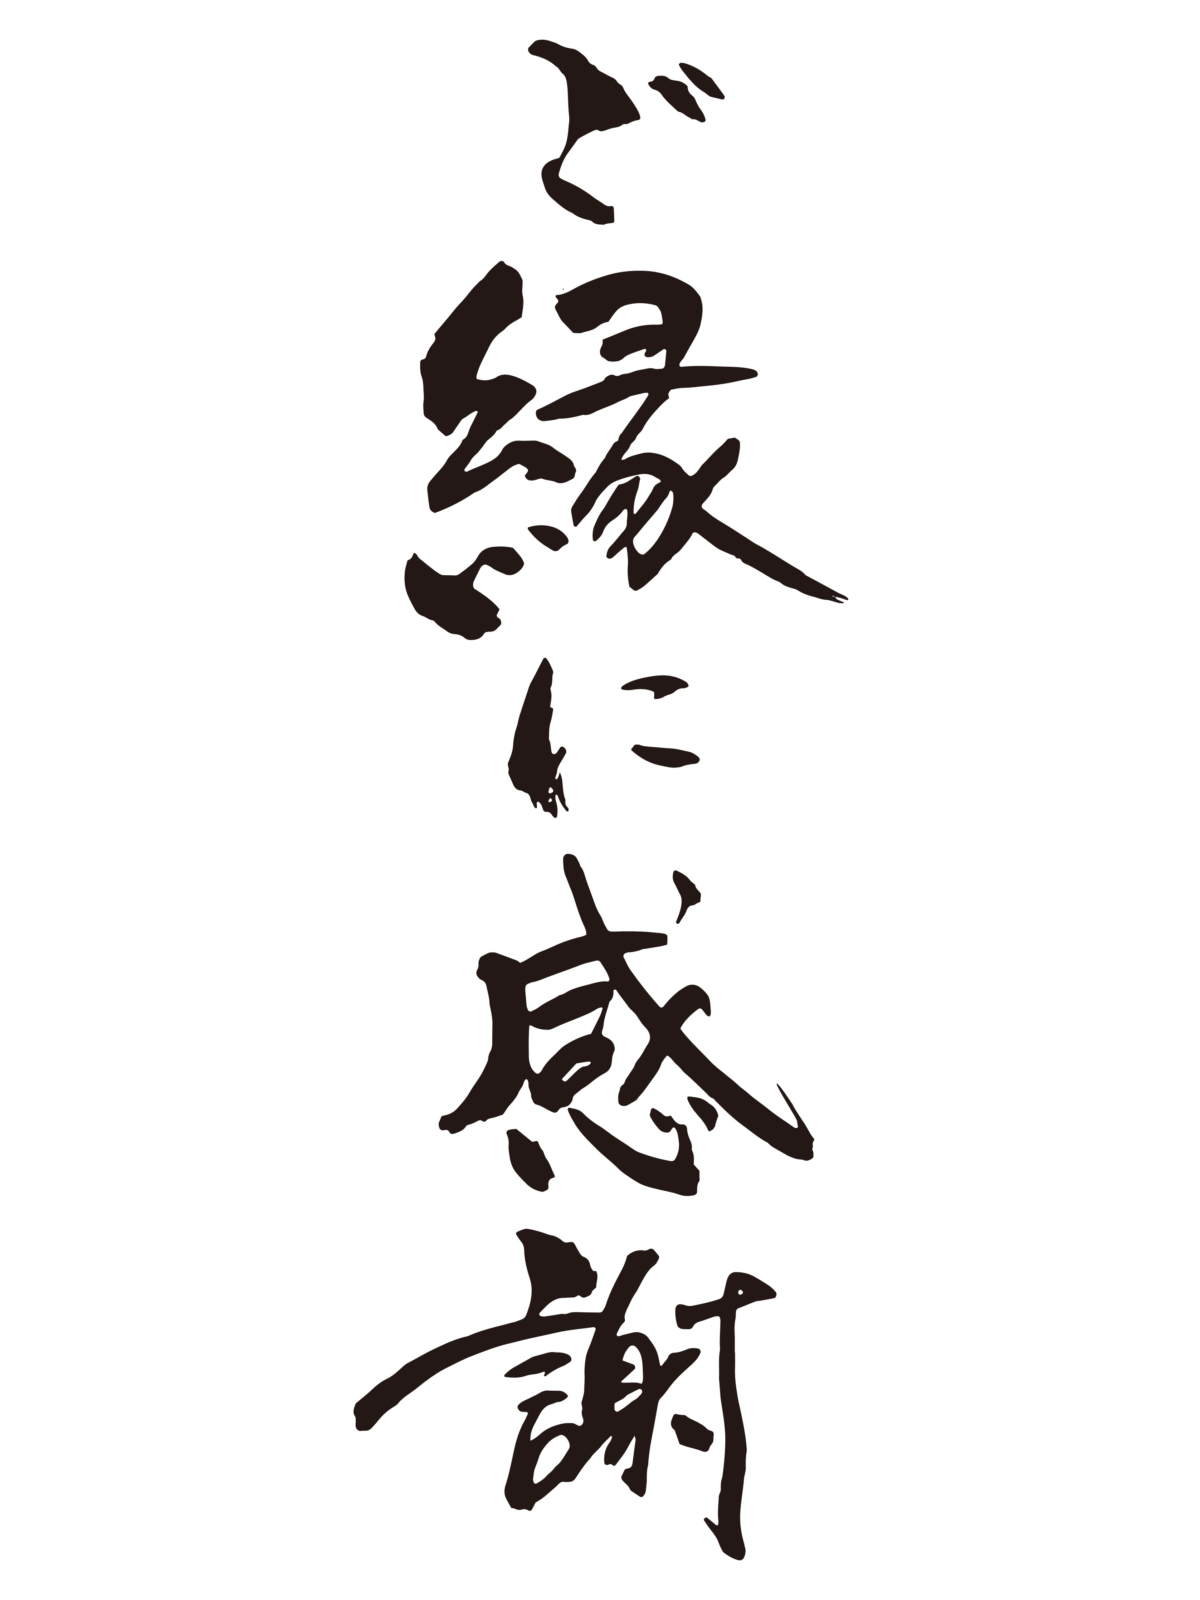 ご縁に感謝